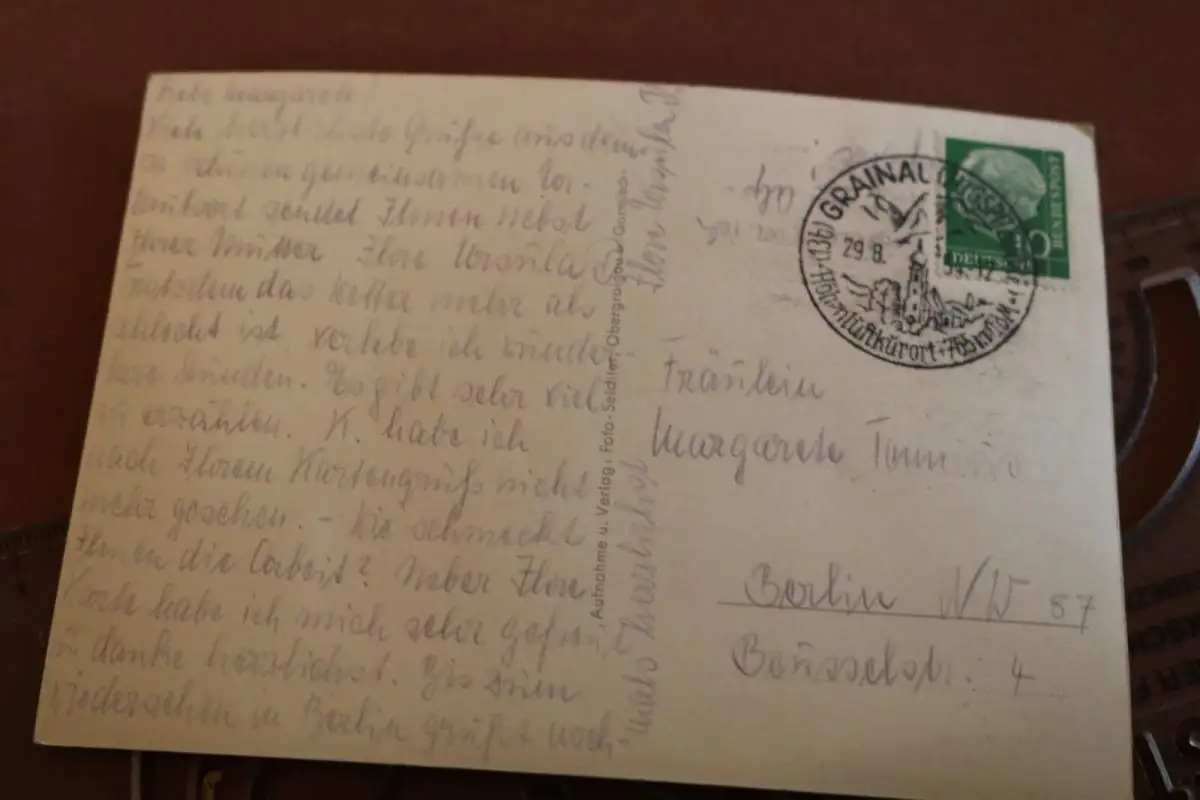 Viele herzliche Grüße aus dem
so schönen gemeinsamen
sendet Ihnen nebst
Ihrer Mutter Ihre Ursula
Trotzdem das Wetter mehr als
schlecht ist verlebe ich wunder-
bare Stunden. Es gibt sehr viel
zu erzählen. K. habe ich
nach Ihrem Kartengruß nicht
mehr gesehen. - Wie schmeckt
Ihnen die Arbeit? Ueber Ihre
Karte habe ich mich sehr gefreut
u danke herzlichst. Bis zum
Wiedersehen in Berlin grüßt noch-
mals herzlichst Ihre Ursula
Aufnahme u. Verlag: Foto-Seidler, Obergrainau b. Garmisch
(13b) GRAINAU
29.8.
Höhenluftkurort
DEUTSCHE
BUNDESPOST
Fräulein
Margarete
Berlin NW 87
Beusselstr. 4